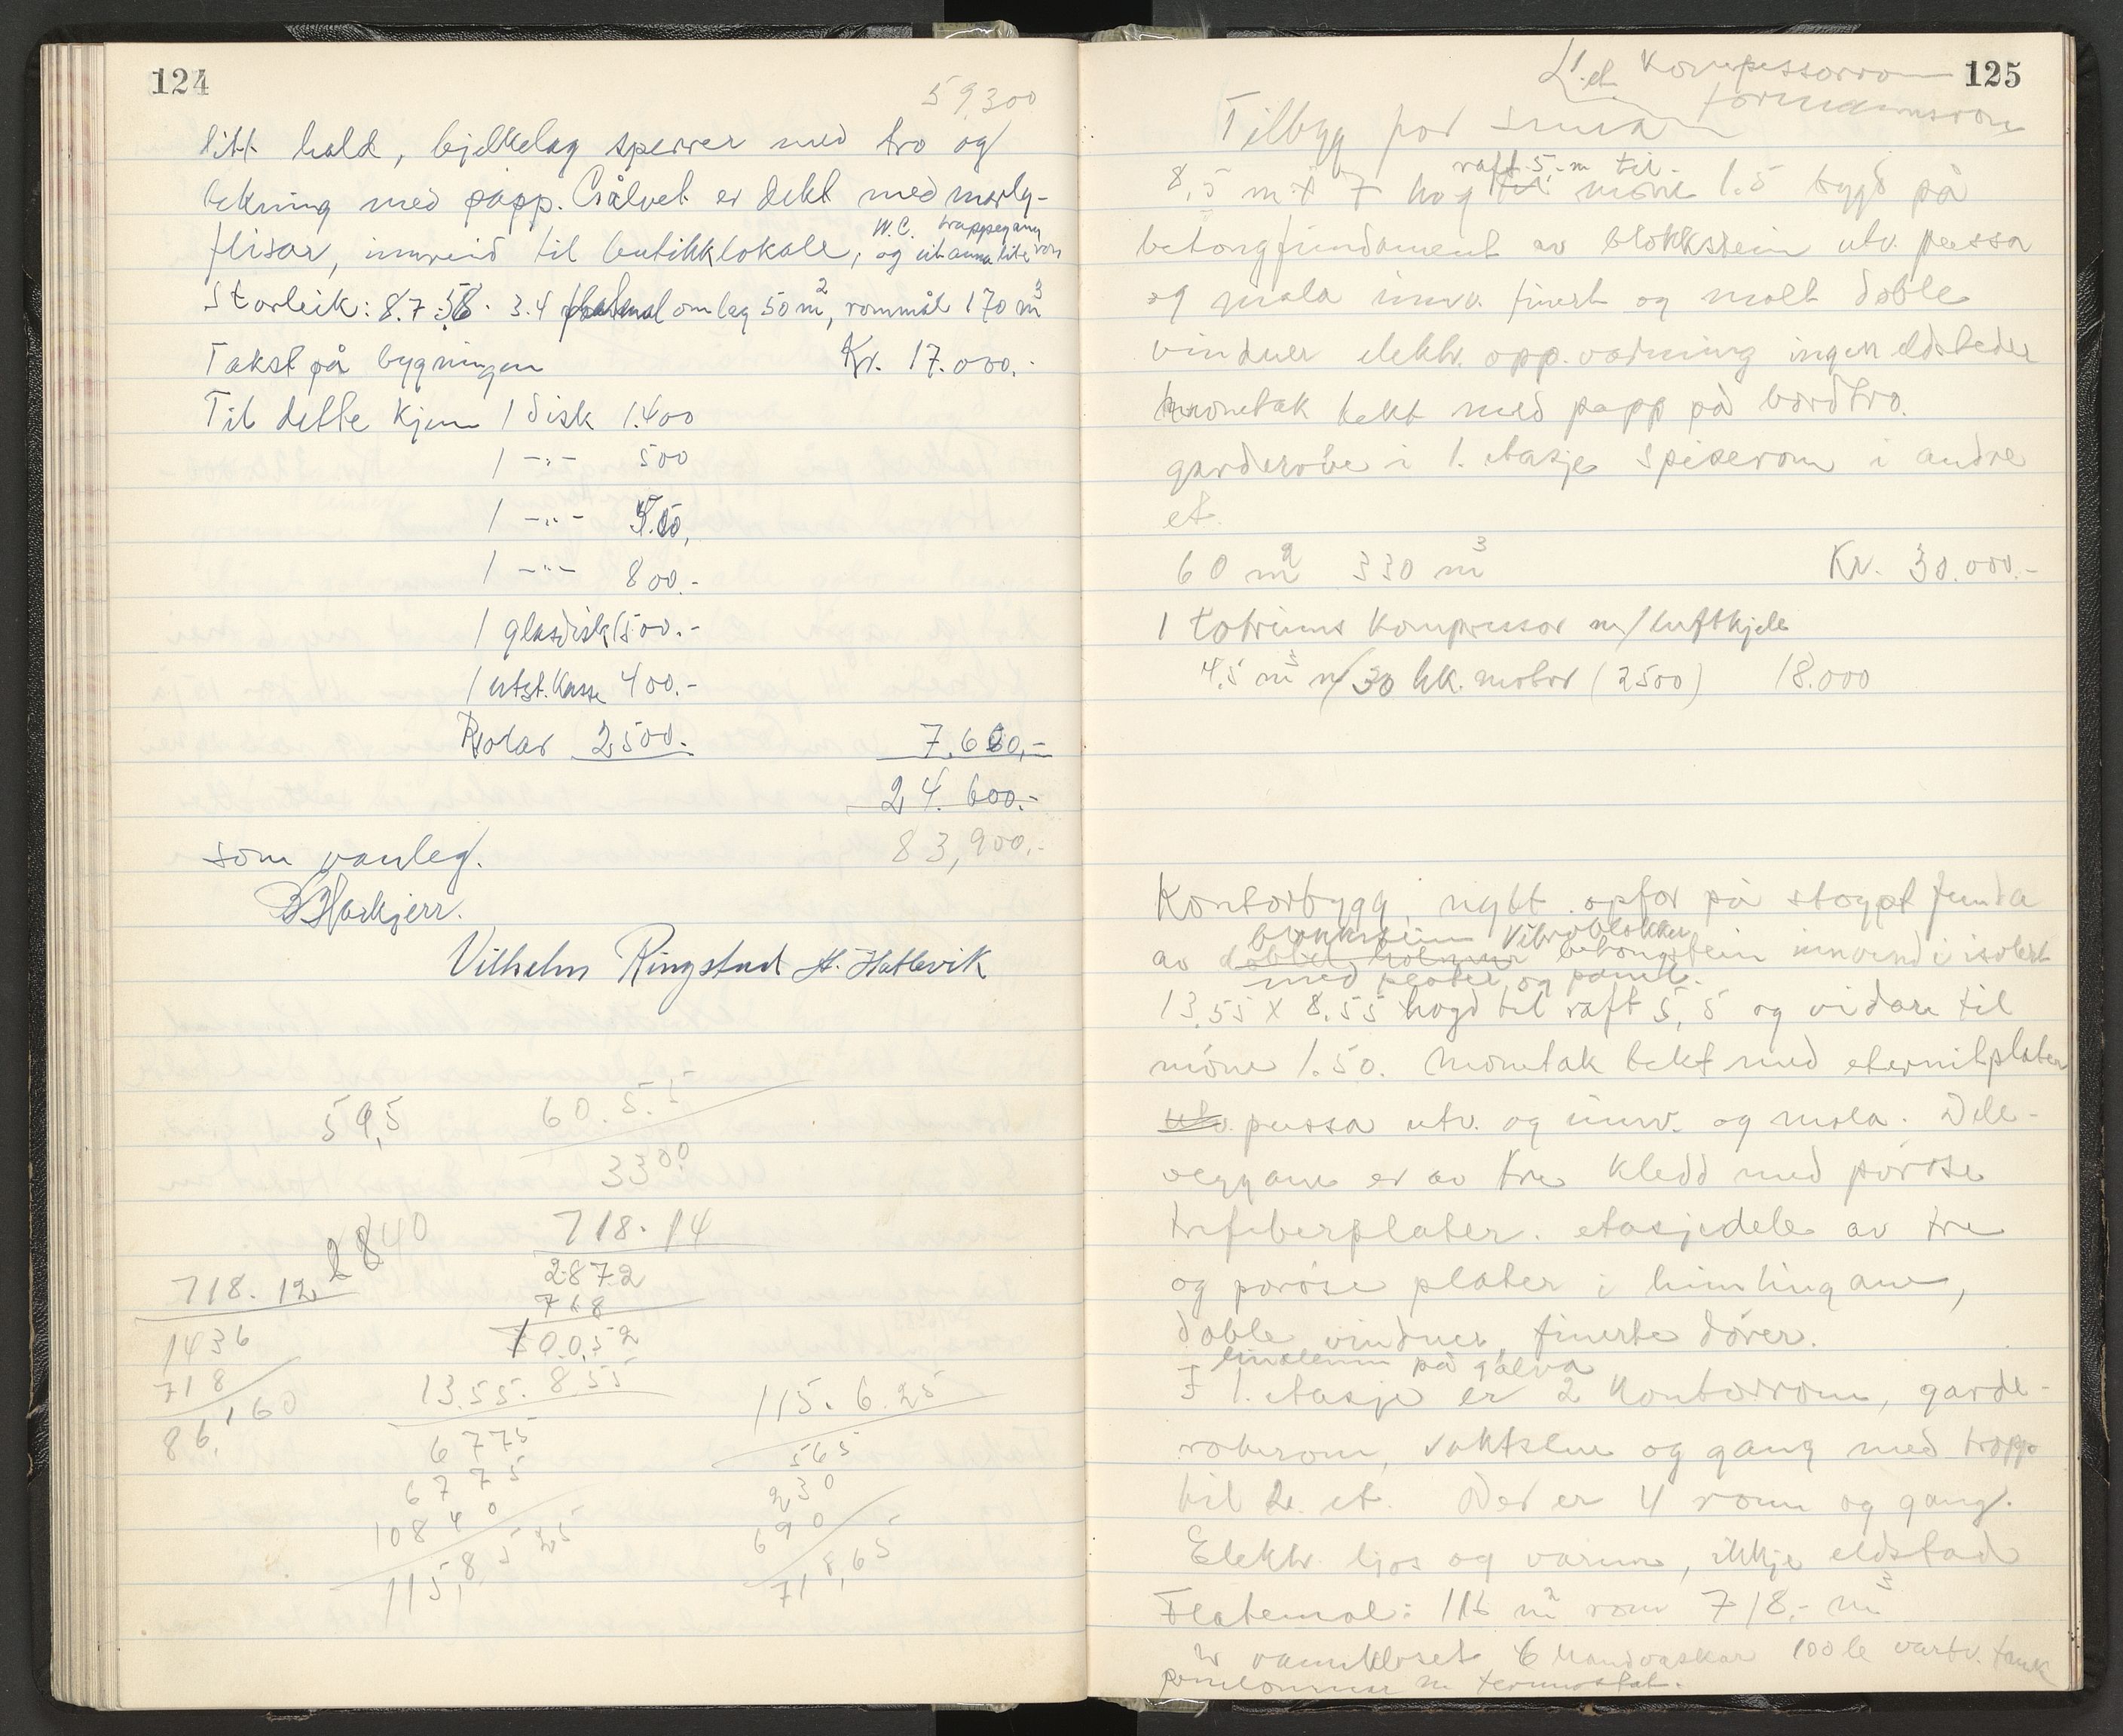 124
59,300
litt hald, bjelkelag sperrer med tro og
tekning med papp. Gólvet er dekt med
flisar, innreid til butikklokale, og eit anna lite rom
W.C. trappegang
Storleik: 8.7 · 5,8 · 3.4 om lag 50 m², rommål 170 m³
Takst på bygningen Kr. 17.000.-
Til dette kjem 1 disk 1.400
1 -"- 500
1 -"- 500,
1 -"- 800.-
1 glasdisk 1500.-
1 kasse 400.-
2500.- 7.600,-
24.600.-
83,900.-
som vanleg.
Vilhelm Ringstad H. Hatlevik
59,5
60. 5.5
3300
2840
718. 14
2872
718
10.0.52
718. 12
1436
718
86,160
13.55. 8.55
6775
6775
10840
115,8525
115. 6.25
565
230
690
718,65
125
1. et. Kompressorrom
formannsrom
Tilbygg for smia
8,5 m x 7 høg raft 5,- m til møne 1.5 bygd på
betongfundament av blokkstein utv. pussa
og måla innv. finert og malt doble
vinduer elektr. oppvarming ingen eldsteder
mønetak tekt med papp på bordtro.
garderobe i 1. etasje spiserom i andre
et.
60 m² 330 m³ Kr. 30.000.-
1 totrinns kompressor m/luftkjele
4,5 m³ m/30 hk. motor (2500) 18.000
Kontorbygg, nytt oppfør på støypt funda
blokkstein Vibroblokker
av dobbel betongstein innvendi isolert
med plater og panel.
13,55 x 8,55 høgd til raft 5,5 og vidare til
møne 1.50. Mønetak tekt med eternitplater
utv. pussa utv. og innv. og mala. Dele-
veggane er av tre kledd med porøse
trefiberplater. etasjedele av tre
og porøse plater i himlingane,
doble vinduer, finerte dører.
linoleum på gólva
I 1. etasje er 2 kontorrom, garde-
roberom, vaktstue og gang med trapp
til 2. et. Der er 4 rom og gang.
Elektr. ljos og varme, ikkje eldstad
Flatemål: 116 m² rom 718,- m³
2 vannkloset 6 handvaskar 100 l. varmtv. tank
m termostat.